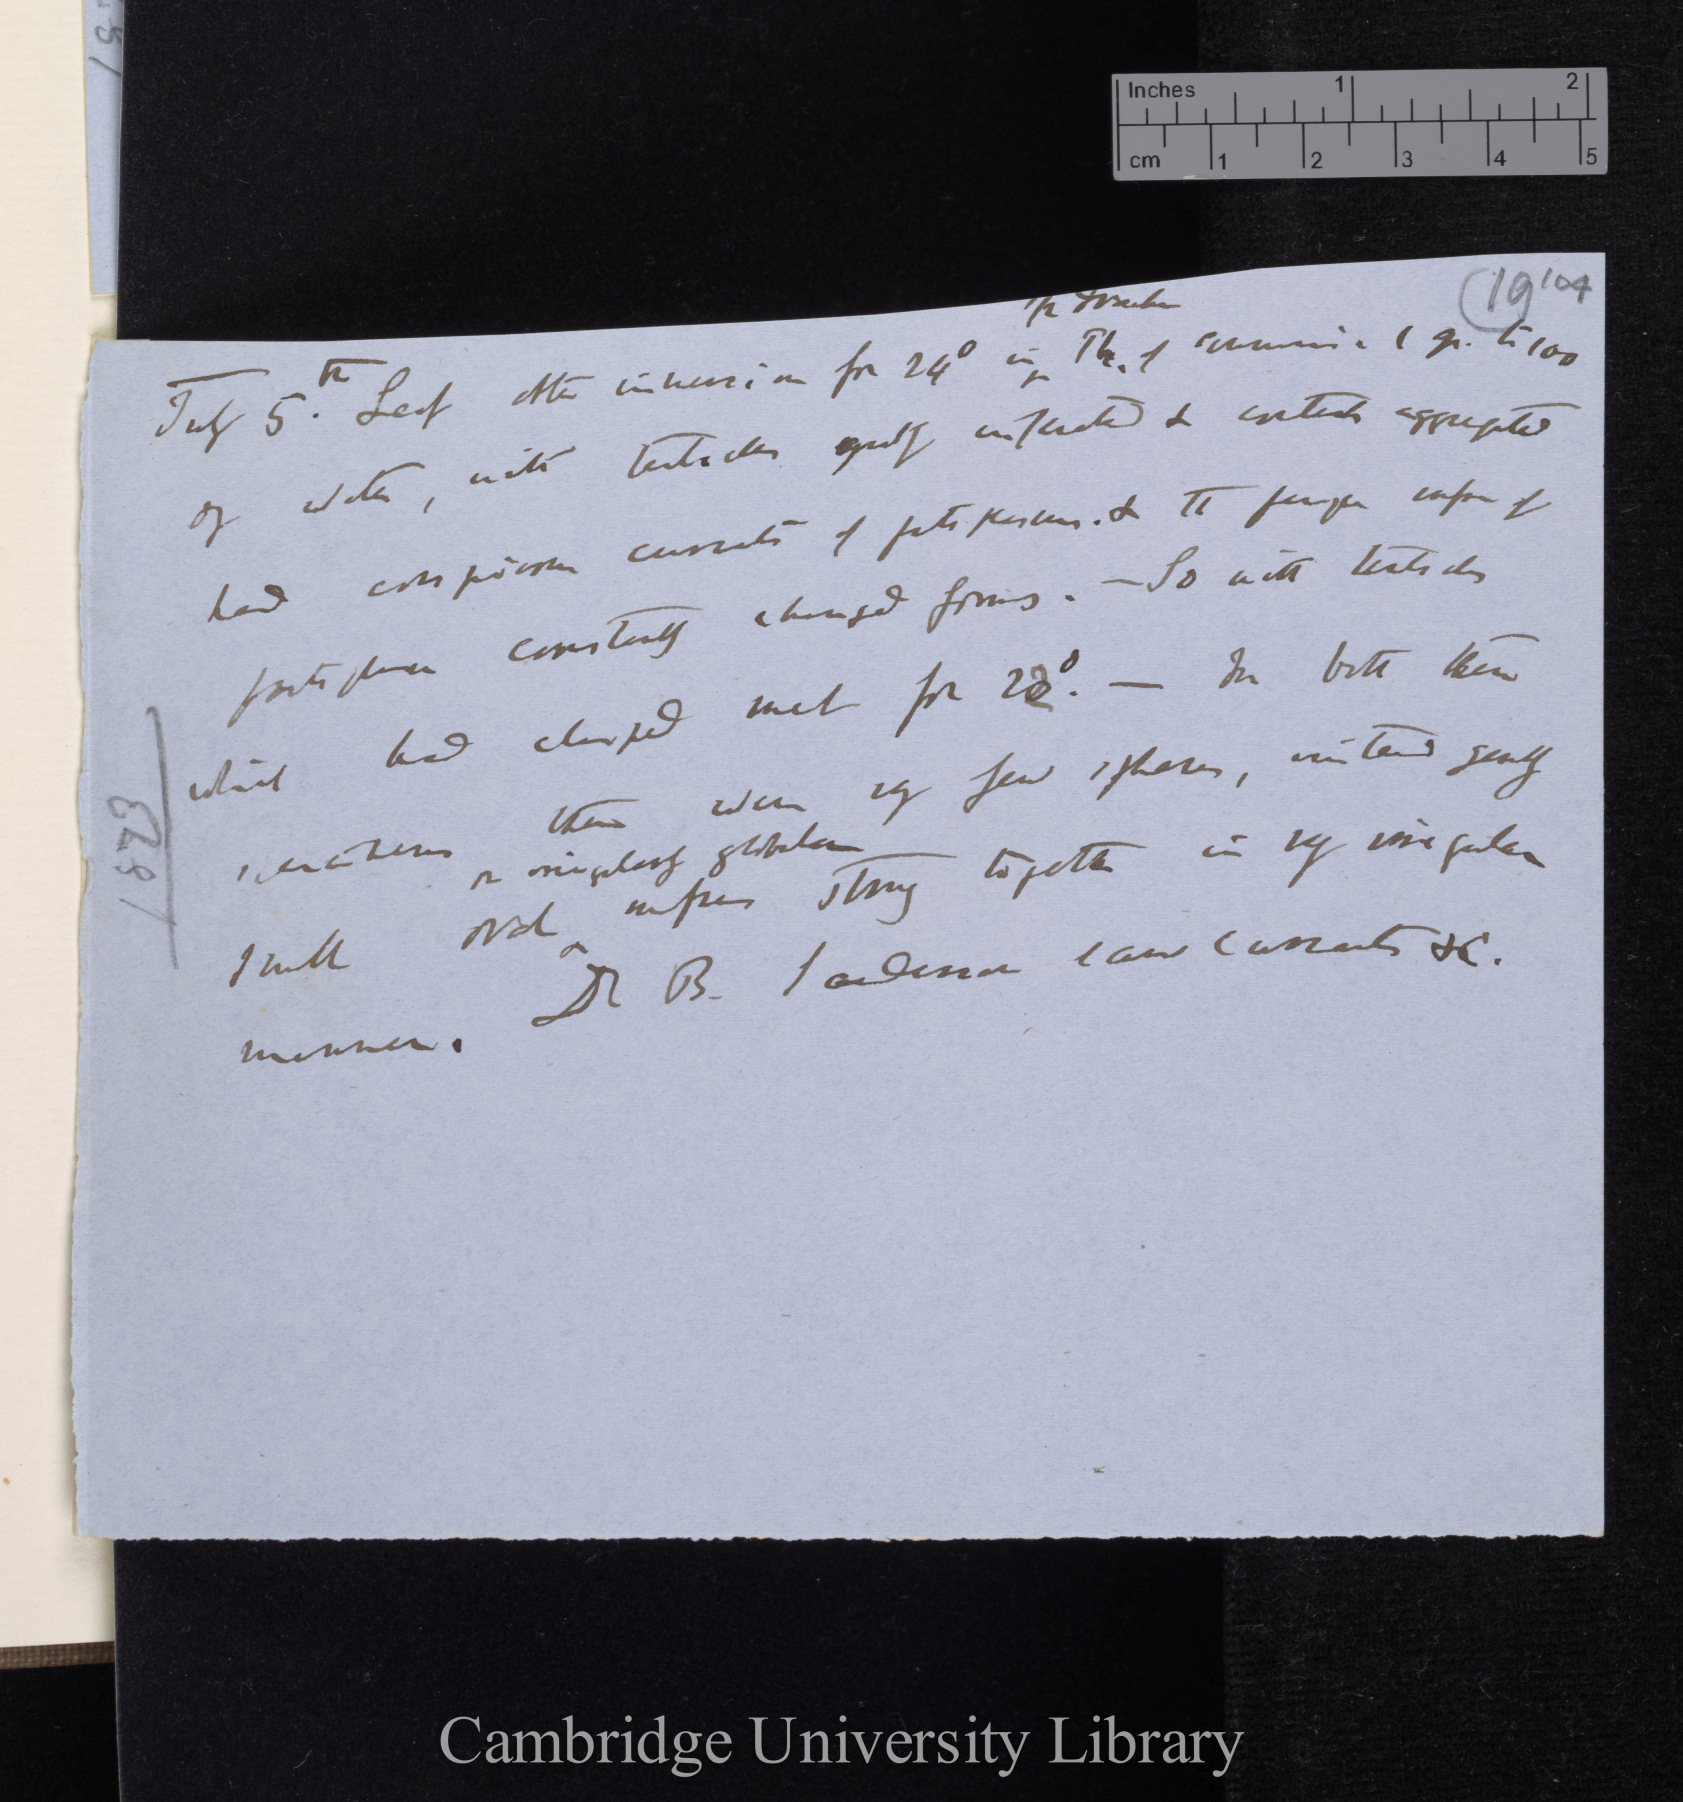 Inches 1 2
cm 1 2 3 4 5
19 104
July 5.th Leaf after immersion for 24° in Ph. of ammonia 1 gr. to 100
oz water, with tentacles greatly inflected & contents aggregated
had conspicuous currents of protoplasm. & the larger masses of
protoplasm constantly changed forms. — So with tentacles
which had clasped meat for 22°. — In both these
specimens there were very few spheres, instead generally
or irregularly globular
small oval masses strung together in very irregular
manner. Dr B. Sanderson saw currents &c.
Cambridge University Library